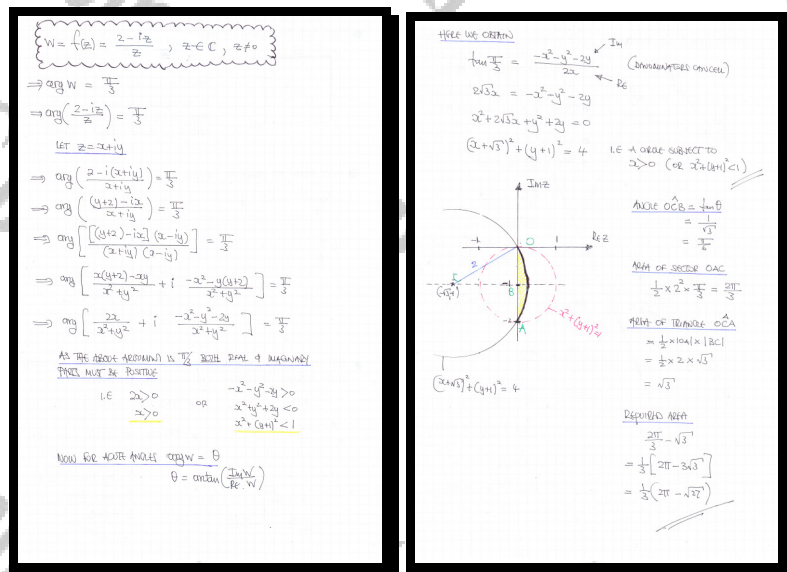 W = f(z) = (2-iz)/z , z∈ℂ, z≠0
⇒ arg W = π/3
⇒ arg((2-iz)/z) = π/3
LET z = x+iy
⇒ arg((2-i(x+iy))/(x+iy)) = π/3
⇒ arg(((y+2)-ix)/(x+iy)) = π/3
⇒ arg[([(y+2)-ix](x-iy))/((x+iy)(x-iy))] = π/3
⇒ arg[(x(y+2)-xy)/(x²+y²) + i (-x²-y(y+2))/(x²+y²)] = π/3
⇒ arg[2x/(x²+y²) + i (-x²-y²-2y)/(x²+y²)] = π/3
AS THE ABOVE ARGUMENT IS π/3 BOTH REAL & IMAGINARY
PARTS MUST BE POSITIVE
I.E 2x>0 OR -x²-y²-2y>0
x>0 x²+y²+2y<0
x²+(y+1)²<1
NOW FOR ACUTE ANGLES arg w = θ
θ = arctan(Im W/Re W)
HERE WE OBTAIN
tan π/3 = (-x²-y²-2y)/2x ← Im ← RE (DENOMINATORS CANCEL)
2√3x = -x²-y²-2y
x²+2√3x+y²+2y=0
(x+√3)²+(y+1)² = 4 I.E A CIRCLE SUBJECT TO
x>0 (OR x²+(y+1)²<1)
Im Z
Re Z
-1
O
1
2
C
(-√3,-1)
-1
B
-2
A
x²+(y+1)²=1
(x+√3)²+(y+1)² = 4
ANGLE OĈB = tanθ
= 1/√3
= π/6
AREA OF SECTOR OAC
½×2²×π/3 = 2π/3
AREA OF TRIANGLE OĈA
= ½×|OA|×|BC|
= ½×2×√3
= √3
REQUIRED AREA
2π/3 - √3
= ⅓[2π-3√3]
= ⅓(2π-√27)